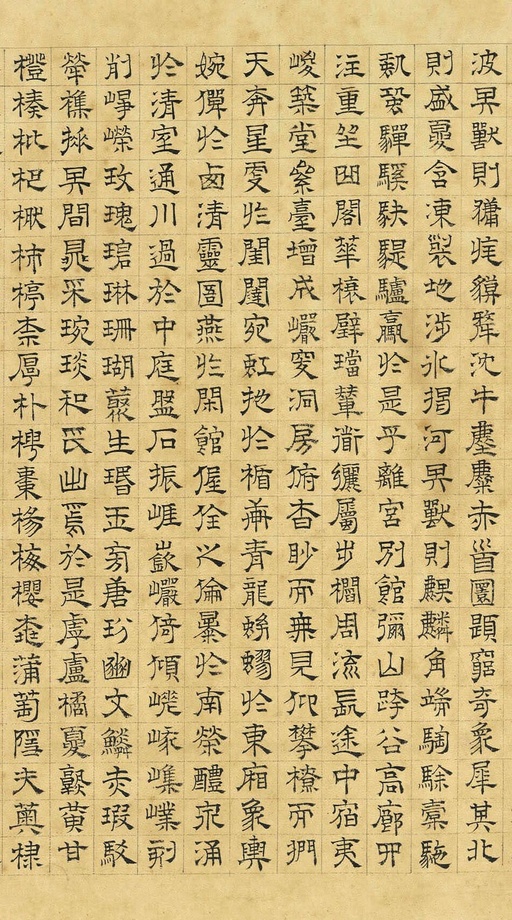 波其獸則㺎旄貘犛沈牛麈麋赤首圜題窮奇象犀其北
則盛夏含凍裂地涉氷揭河其獸則麒麟角端騊駼橐駞
蛩蛩驒騱駃騠驢驘於是乎離宮別館彌山跨谷高廊四
注重坐曲閣華榱璧璫輦道纚屬步櫩周流長途中宿夷
嵕築堂絫臺增成巖窔洞房俯杳眇而無見仰攀橑而捫
天奔星更於閨闥宛虹扡於楯軒青龍蚴蟉於東廂象輿
婉僤於西清靈圄燕於閒館偓佺之倫暴於南榮醴泉涌
於清室通川過於中庭盤石振崖嶔巖倚傾嵯峨嶕嶪刻
削崢嶸玫瑰碧琳珊瑚叢生瑉玉旁唐玢豳文鱗赤瑕駁
犖雜插其間晁采琬琰和氏出焉於是乎盧橘夏熟黃甘
橙楱枇杷橪柿楟柰厚朴梬棗楊梅櫻桃蒲萄隱夫薁棣